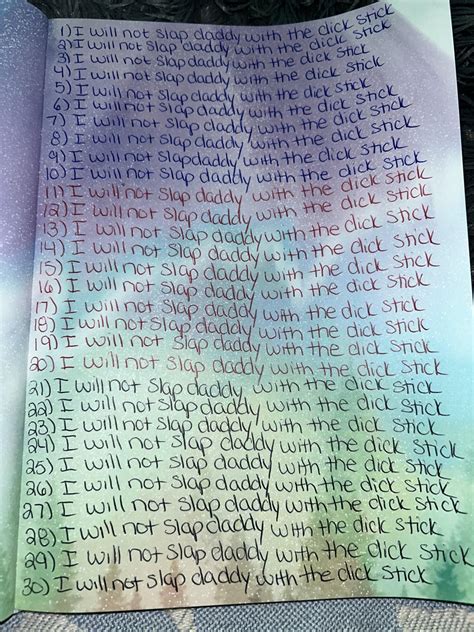 1) I will not slap daddy with the dick stick
2) I will not slap daddy with the dick stick
3) I will not slap daddy with the dick stick
4) I will not slap daddy with the dick stick
5) I will not slap daddy with the dick stick
6) I will not slap daddy with the dick stick
7) I will not slap daddy with the dick stick
8) I will not slap daddy with the dick stick
9) I will not slap daddy with the dick stick
10) I will not slap daddy with the dick stick
11) I will not slap daddy with the dick stick
12) I will not slap daddy with the dick stick
13) I will not slap daddy with the dick stick
14) I will not slap daddy with the dick stick
15) I will not slap daddy with the dick stick
16) I will not slap daddy with the dick stick
17) I will not slap daddy with the dick stick
18) I will not slap daddy with the dick stick
19) I will not slap daddy with the dick stick
20) I will not slap daddy with the dick stick
21) I will not slap daddy with the dick stick
22) I will not slap daddy with the dick stick
23) I will not slap daddy with the dick stick
24) I will not slap daddy with the dick stick
25) I will not slap daddy with the dick stick
26) I will not slap daddy with the dick stick
27) I will not slap daddy with the dick stick
28) I will not slap daddy with the dick stick
29) I will not slap daddy with the dick stick
30) I will not slap daddy with the dick stick